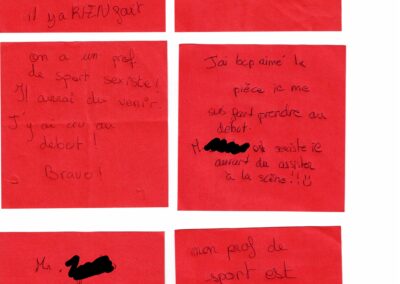 il y a RIEN fait
on a un prof
de sport sexiste!
Il aurai du venir.
J'y ai cru au
debut!
Bravo!
J'ai bcp aimé la
pièce je me
suis fait prendre au
debut.
M. est sexiste il
aurait du assister
à la scène!!!
Mr.
mon prof de
sport est